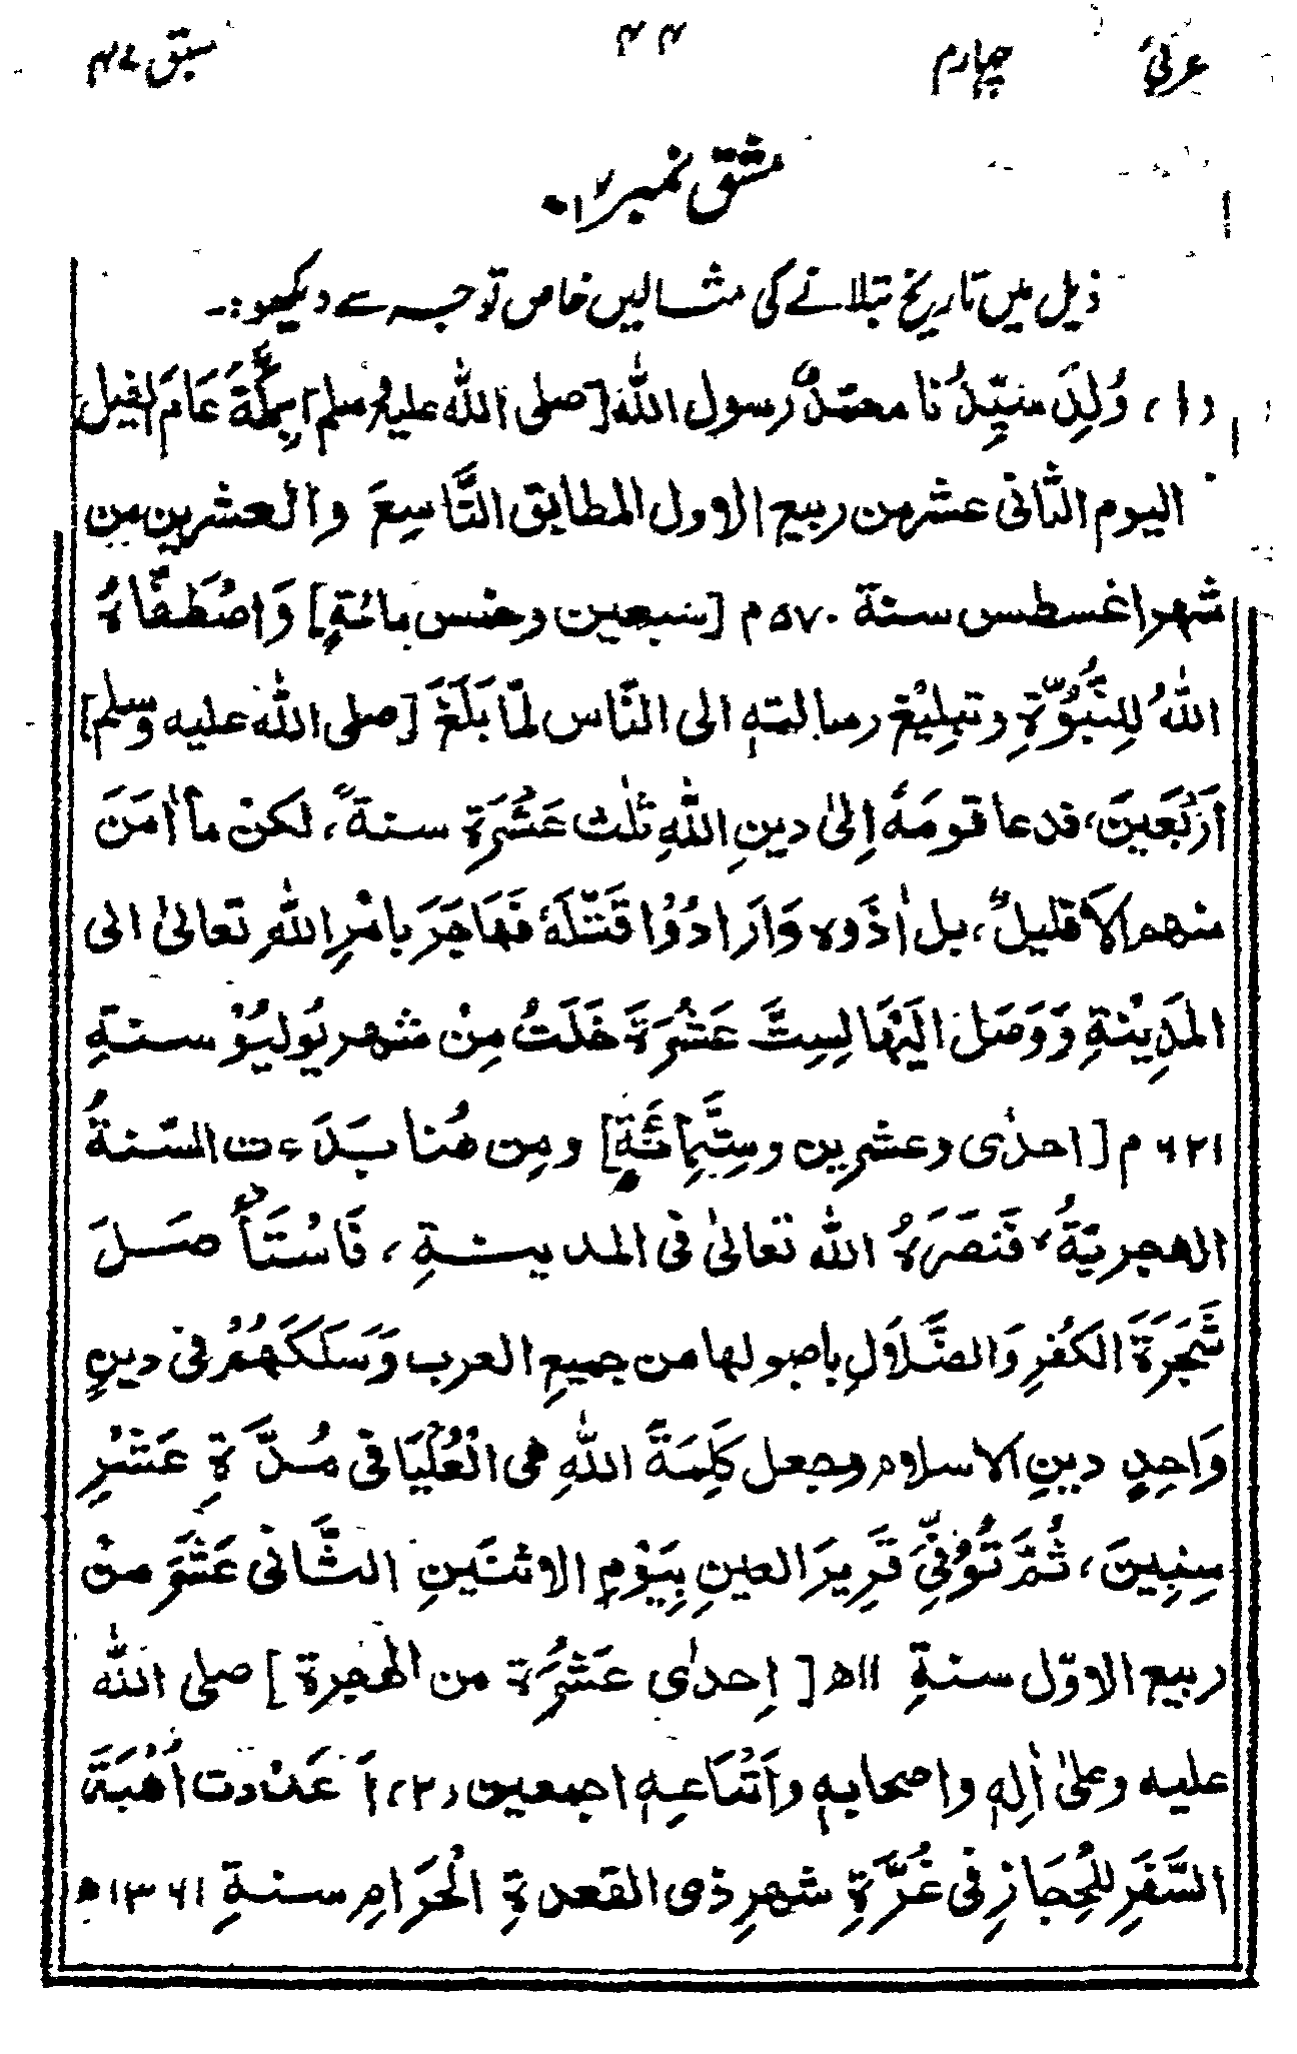 عربی چہارم ۴۴ سبق ۴۷
مشق نمبر ۱۰۷
ذیل میں تاریخ بتلانے کی مثالیں خاص توجہ سے دیکھو:۔
(۱) وُلِدَ سَیِّدُنَا محمّدٌ رسول اللّٰہ [صلی اللّٰہ علیہ وسلم] بِمَکَّۃَ عَامَ الفیل
الیوم الثانی عشر من ربیع الاول المطابق التَّاسِعَ والعشرین من
شھر اغسطس سنۃ ۵۷۰ م [سبعین وخمس مائۃٍ] وَاصْطَفَاہُ
اللّٰہُ لِلنُّبُوَّۃِ وتبلِیْغِ رسالتہٖ الی النَّاس لمّا بَلَغَ [صلی اللّٰہ علیہ وسلم]
اَرْبَعِینَ، فدعا قومَہٗ اِلیٰ دینِ اللّٰہِ ثلٰث عَشَرَۃَ سنۃً، لکنْ ما اٰمَنَ
منھم الّا قلیلٌ، بل اٰذَوہ وَاَرَادُوْا قَتْلَہٗ فَھَاجَرَ بِاَمْرِ اللّٰہِ تعالیٰ الی
المَدِیْنۃِ وَوَصَلَ الَیْھَا لِسِتَّ عَشْرَۃَ خَلَتْ مِنْ شھر یُولیُوْ سنۃِ
۶۲۱ م [احدٰی وعشرین وسِتَّمِائَۃٍ] ومِن ھُنا بَدَءت السّنۃُ
الھجریّۃُ، فَنَصَرَہُ اللّٰہ تعالیٰ فی المدینۃِ، فَاسْتَأْصَلَ
شَجَرَۃَ الکُفرِ وَالضَّلَالِ باصولھا من جمیعِ العرب وَسَلَکَھُمْ فی دینٍ
وَاحِدٍ دینِ الاسلام وجعل کَلِمَۃَ اللّٰہِ ھی الْعُلْیَا فی مُدَّۃِ عَشْرِ
سِنِینَ، ثُمَّ تُوُفِّیَ قَرِیرَ العینِ بِیَوْمِ الاثنَینِ الثَّانی عَشَرَ منْ
ربیع الاوّل سنۃِ ۱۱ھ [اِحدٰی عَشَرَۃ من الھجرۃ] صلی اللّٰہ
علیہ وعلیٰ اٰلِہٖ واصحابہٖ واَتْبَاعِہٖ اجمعین (۲) اَعْدَدت اُھْبَۃَ
السَّفَرِ لِلْحِجَازِ فی غُرَّۃِ شھرِ ذی القعدۃِ الْحَرَامِ سنۃِ ۱۳۶۱ھ